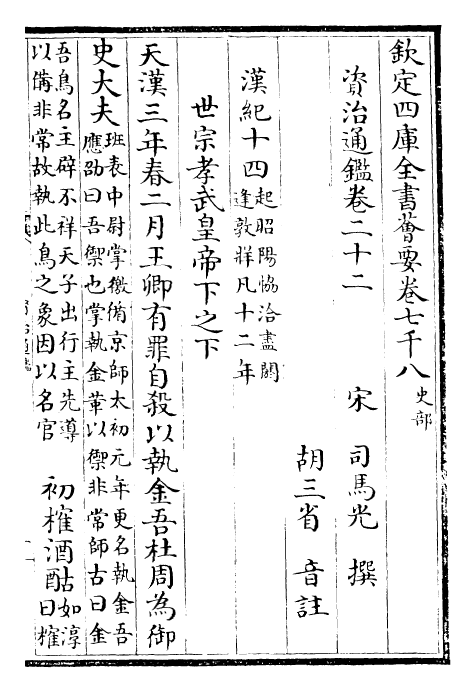 欽定四庫全書薈要卷七千八 史部
資治通鑑卷二十二
宋 司馬光 撰
胡三省 音註
漢紀十四 起昭陽協洽盡閼逢敦牂凡十二年
世宗孝武皇帝下之下
天漢三年春二月王卿有罪自殺以執金吾杜周為御
史大夫 班表中尉掌徼循京師太初元年更名執金吾應劭曰吾禦也掌執金革以禦非常師古曰金
吾鳥名主辟不祥天子出行主先導以備非常故執此鳥之象因以名官 初榷酒酤 如淳曰榷